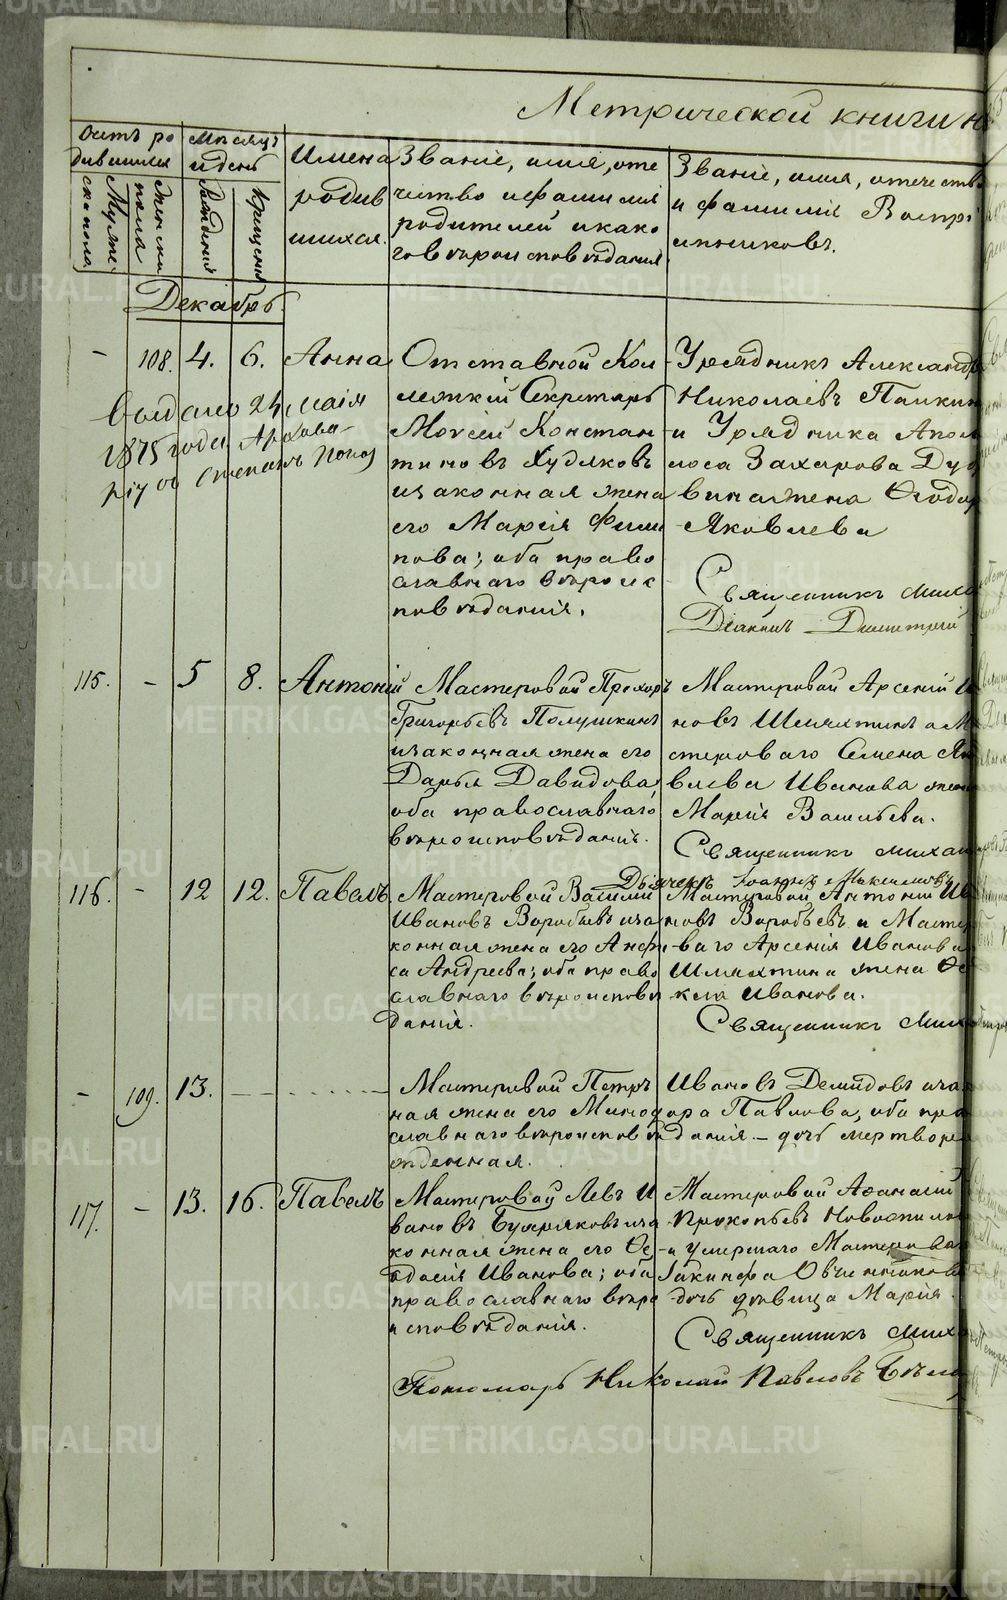 Метрической книги на
Счетъ ро
дившихся
Мѣсяцъ
и день
Муже
скаго пола
Женска
пола
Рожденія
Крещенія
Имена
родив
шихся.
Званіе, имя, оте
чество и фамилія
родителей и како
го вѣроисповѣданія
Званіе, имя, отечество
и фамилія Воспрі
емниковъ.
Декабрь.
- 108. 4. 6. Анна
Отставной Кол
лежкій Секретарь
Моѵсей Констан
тиновъ Худяковъ
и законная жена
его Марія Фили
пова; оба право
славнаго вѣроис
повѣданія.
Урядникъ Александр
Николаевъ Папкин
и Урядника Апол
лоса Захарова Дуб
вина жена Ѳеодор
Яковлева
Священникъ Миха
Діаконъ Димитрій
Выдано 24 маія
1875 года
Степанъ Попов
115. - 5 8. Антоній
Мастеровой Прохоръ
Григорьевъ Полушкинъ
и законная жена его
Дарья Давидова,
оба православнаго
вѣроисповѣданія.
Мастеровой Арсеній И
новъ Шляхтинъ и Ма
стероваго Семена Як
влева Иванова жена
Марія Васильева.
Священникъ Михаи
Дьячекъ Іоаннъ Максимовъ
116. - 12 12. Павелъ
Мастеровой Василій
Ивановъ Воробьевъ и за
конная жена его Анфи
са Андреева; оба право
славнаго вѣроисповѣ
данія.
Мастеровой Антоній Ив
новъ Воробьевъ и Масте
ваго Арсенія Иванова
Шляхтина жена Ѳе
кла Иванова.
Священникъ Миха
- 109. 13. - - - - -
Мастеровой Петръ Ивановъ Демидовъ и зак
ная жена его Минодора Павлова, оба пра
славнаго вѣроисповѣданія - дочь мертворо
жденная.
117. - 13. 16. Павелъ
Мастеровой Левъ И
вановъ Бухряковъ и за
конная жена его Ѳе
одосія Иванова; оба
православнаго вѣро
исповѣданія.
Мастеровой Аѳанасій
Прокопьевъ Новоспилов
и умершаго Мастерова
Іакинфа Овчинников
дочь дѣвица Марія.
Священникъ Миха
Пономарь Николай Павловъ
METRIKI.GASO-URAL.RU